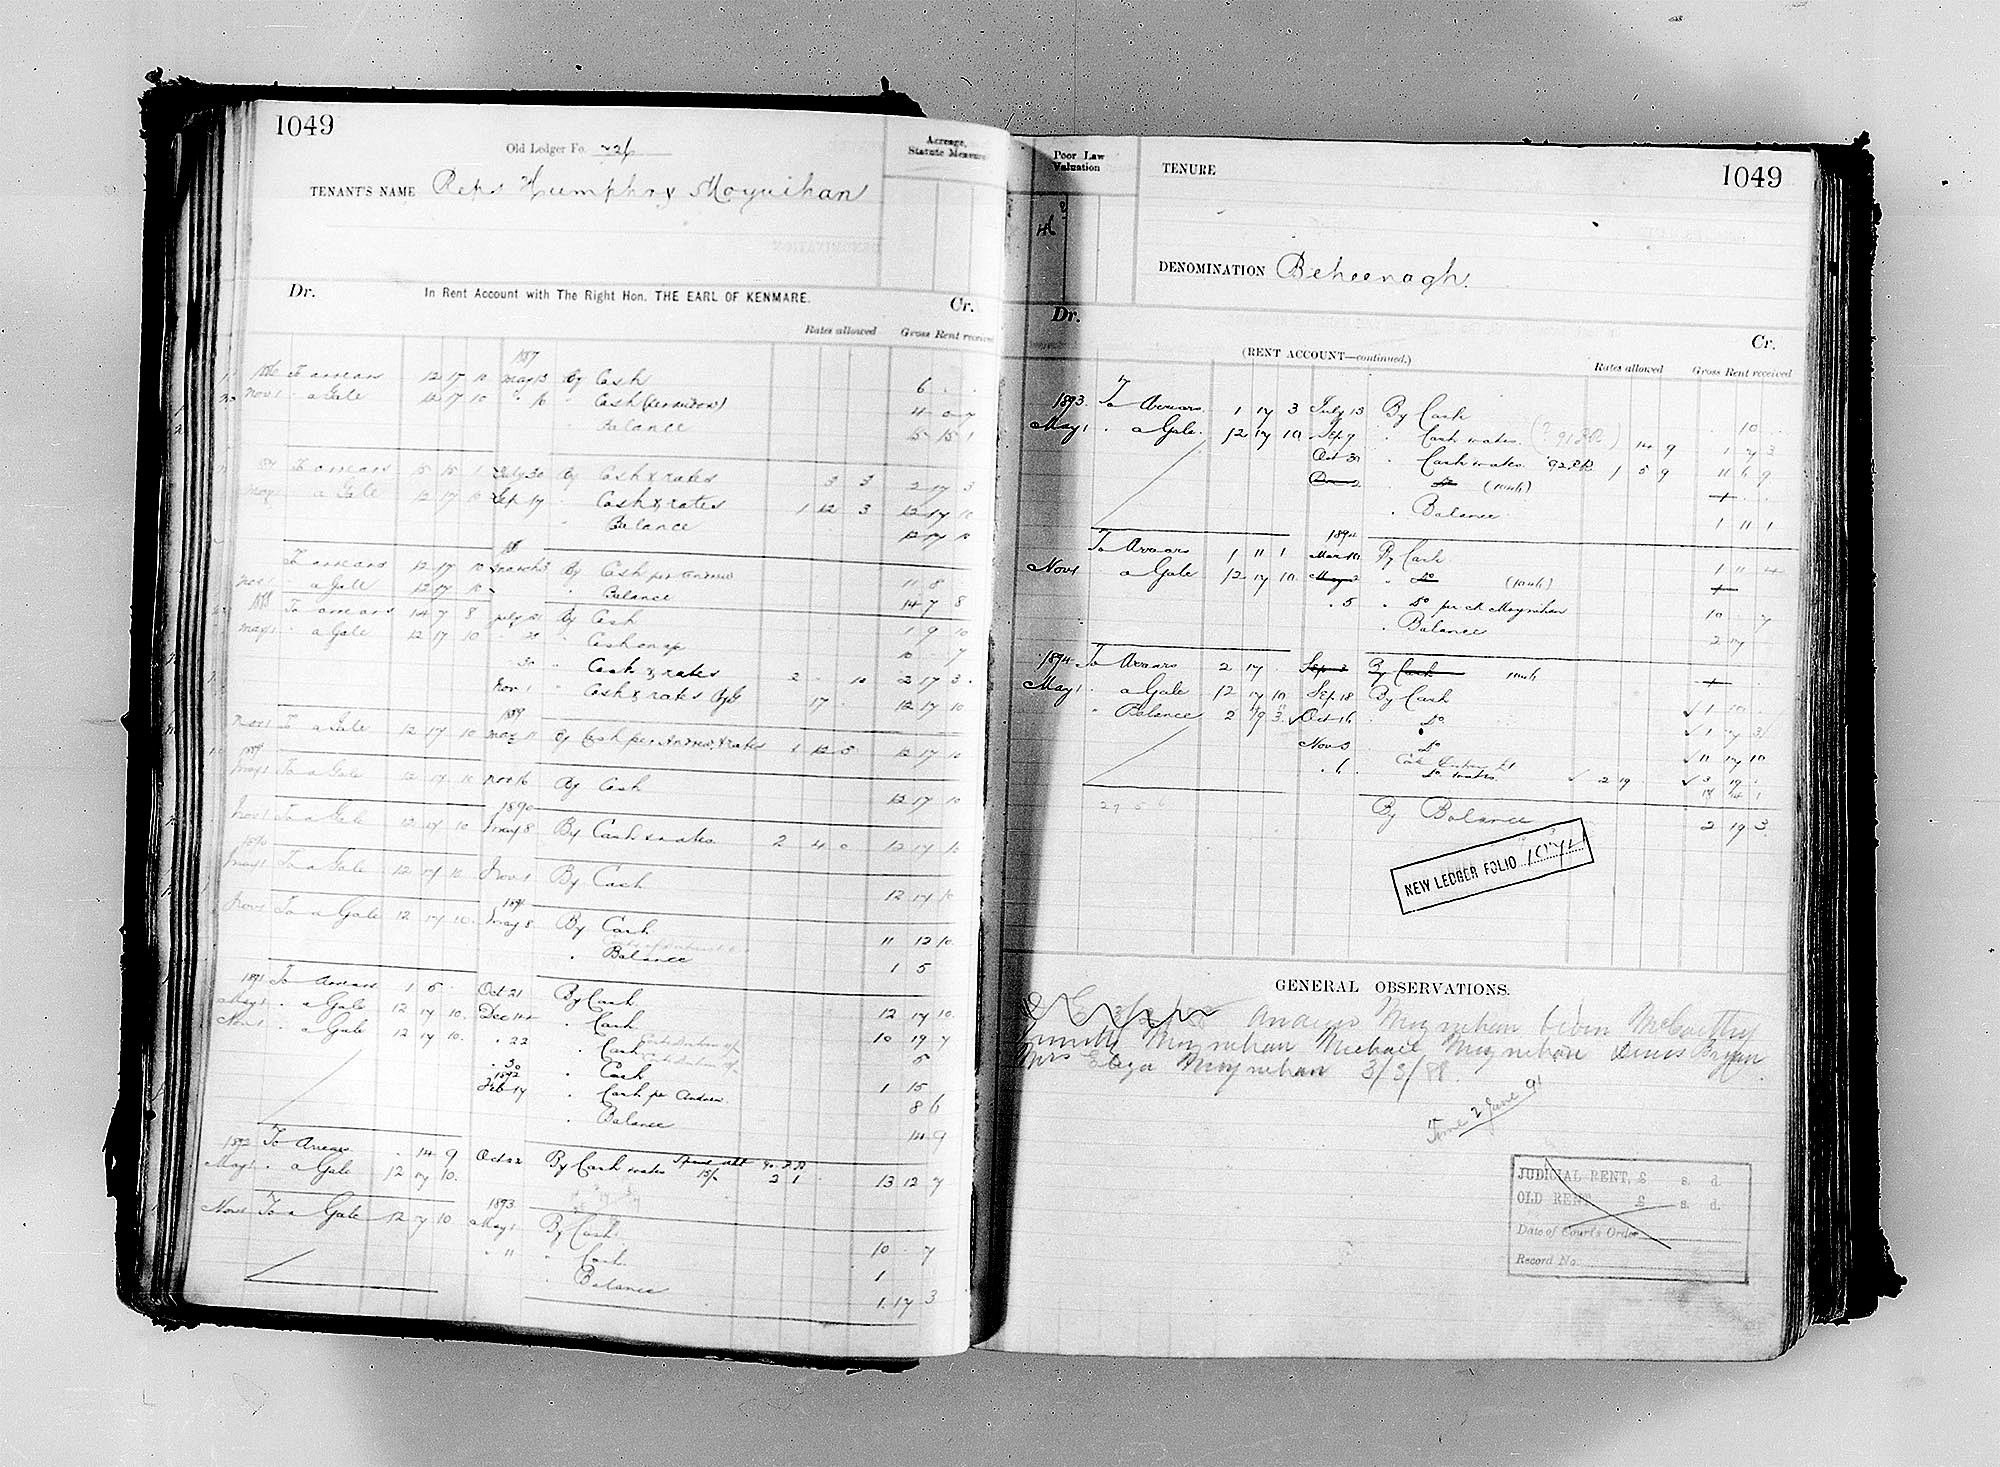 1049
Old Ledger Fo. 726
TENANT'S NAME Reps Humphry Moynihan
Acreage, Statute Measure
Dr. In Rent Account with The Right Hon. THE EARL OF KENMARE. Cr.
Rates allowed Gross Rent received
1887
1886 To arrears 12 17 10 May 13 By Cash 6 . .
Nov 1 " a Gale 12 17 10 " 16 " Cash (per widow) 4 0 7
Balance 15 15 1
To arrears 15 15 1 July 30 By Cash & rates 3 3 2 17 3
May 1 " a Gale 12 17 10 Sep 17 " Cash & rates 1 12 3 12 17 10
" Balance 12 17 10
To arrears 12 17 10 March 3 By Cash per Andrew 11 8
Nov 1 " a Gale 12 17 10 " Balance 14 7 8
1888 To arrears 14 7 8 July 21 By Cash 1 9 10
May 1 " a Gale 12 17 10 " 28 " Cash on ap 10 . 7
" 30 " Cash & rates 2 . 10 2 17 3
Nov 1 " Cash & rates 17 . 12 17 10
1889
Nov 1 To a Gale 12 17 10 May 11 By Cash per Andrew & rates 1 12 5 12 17 10
1889
May 1 To a Gale 12 17 10 Nov 16 By Cash 12 17 10
1890
Nov 1 To a Gale 12 17 10 May 8 By Cash & rates 2 4 0 12 17 10
1890
May 1 To a Gale 12 17 10 Nov 1 By Cash 12 17 10
1891
Nov 1 To a Gale 12 17 10 May 8 By Cash 11 12 10
" Balance 1 5
1891 To Arrears 1 5 . Oct 21 By Cash 12 17 10
May 1 " a Gale 12 17 10 Dec 14 " Cash 10 19 7
Nov 1 " a Gale 12 17 10 " 22 " Cash 5
" 30 " Cash 1 15
1892
Feb 17 " Cash per Andrew 8 6
" Balance 14 9
1892 To Arrears . 14 9 Oct 22 By Cash & rates 15/- 2 1 13 12 7
May 1 " a Gale 12 17 10
1893
Nov 1 To a Gale 12 17 10 May 1 By Cash 10 . 7
" 11 " Cash 1
" Balance 1 17 3
Poor Law Valuation
TENURE
1049
DENOMINATION Beheenagh
Dr. Cr.
(RENT ACCOUNT—continued.)
Rates allowed Gross Rent received
1893 To Arrears 1 17 3 July 13 By Cash . 10 .
May 1 " a Gale 12 17 10 Sep 7 " Cash & rates (? 91 PR) 14 9 1 7 3
Oct 30 " Cash & rates '92 PR 1 5 9 11 6 9
Do
" Balance 1 11 1
1894
To Arrears 1 11 1 Mar By Cash 1 11 4
Nov 1 " a Gale 12 17 10 May 2 " Do
" 5 " Do per ch Moynihan 10 . 7
" Balance 2 17
1894 To Arrears 2 17 . Sep 3 By Cash
May 1 " a Gale 12 17 10 Sep 18 By Cash 1 10 .
" Balance 2 19 3 Oct 16 " Do 1 7 3
Nov 3 " Do 11 17 10
" 6 " Do & rates 2 19 3 19 .
18 14 1
27 5 6 By Balance 2 19 3
NEW LEDGER FOLIO 1071
GENERAL OBSERVATIONS.
3/2/88 Andrew Moynihan McCarthy
Moynihan Michael Moynihan Denis Bryan
Mrs Eliza Moynihan 3/3/88
Time 2 June 91
JUDICIAL RENT, £ s. d.
OLD RENT £ s. d.
Date of Court's Order
Record No.